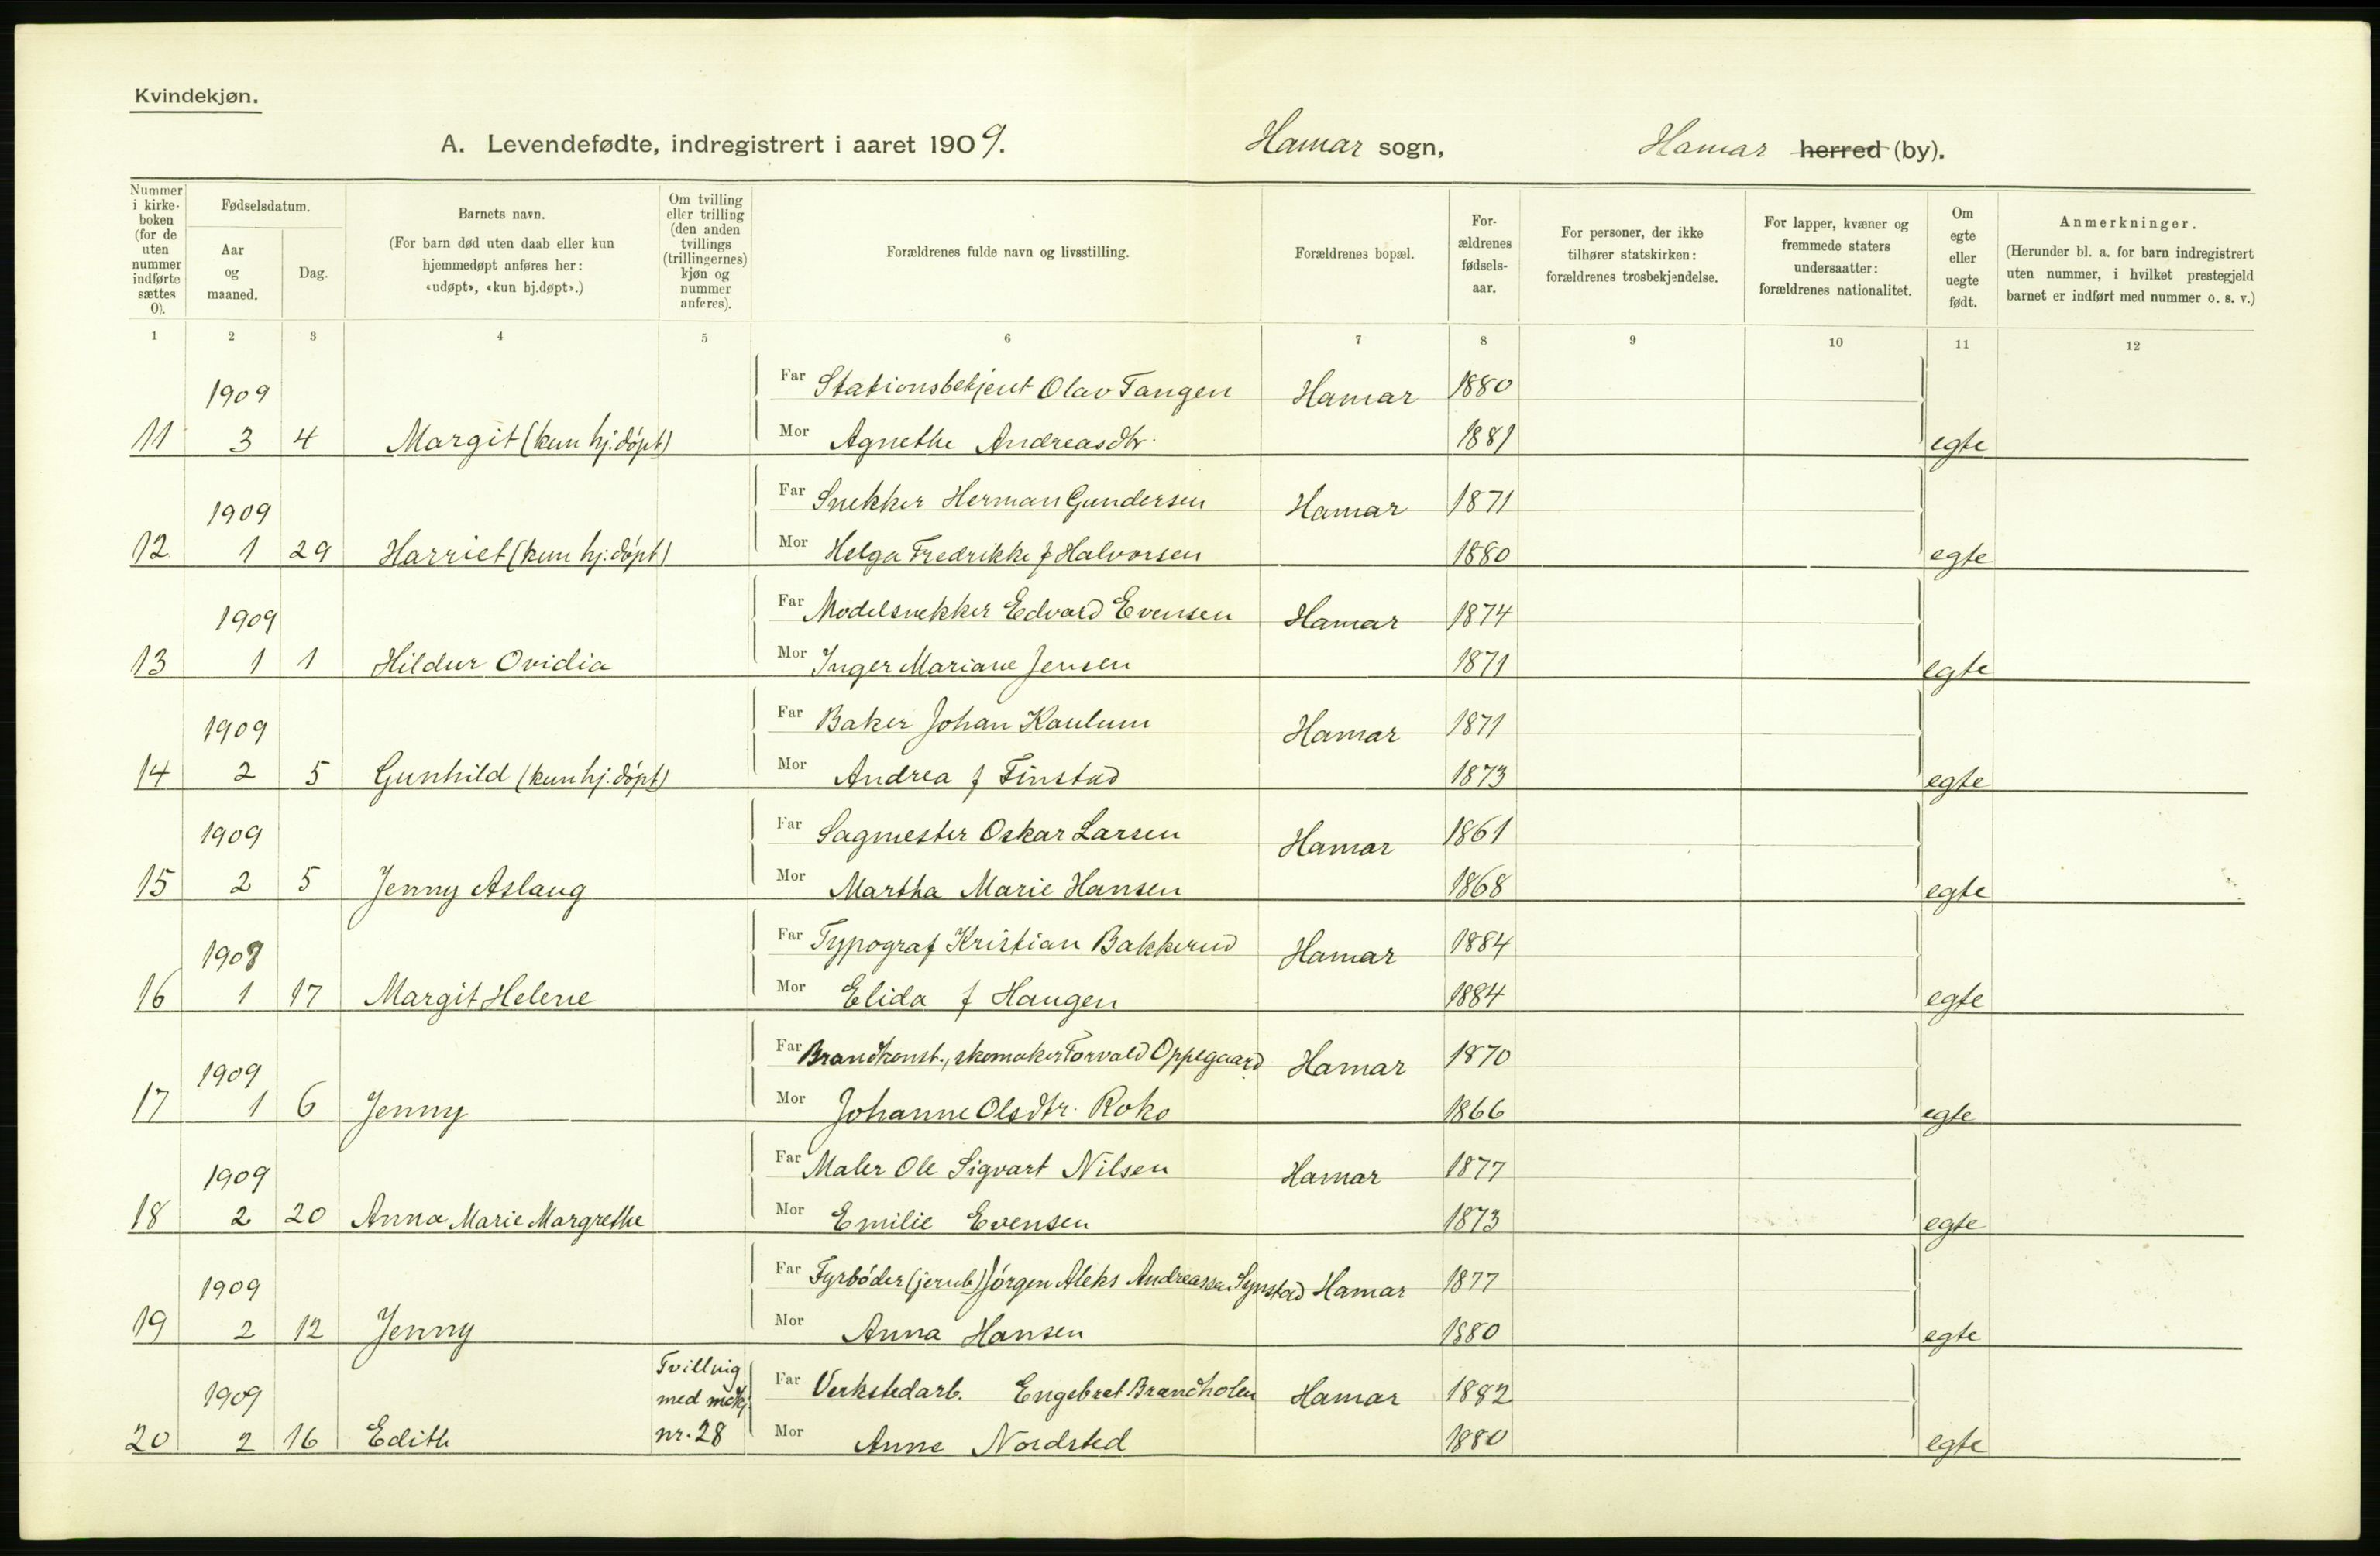 Kvindekjøn.
A. Levendefødte, indregistrert i aaret 1909. Hamar sogn, Hamar herred (by).
Nummer i kirke-boken (for de uten nummer indførte sættes 0).
Fødselsdatum.
Aar og maaned.
Dag.
Barnets navn.
(For barn død uten daab eller kun hjemmedøpt anføres her: «udøpt», «kun hj.døpt».)
Om tvilling eller trilling (den anden tvillings (trillingernes) kjøn og nummer anføres).
Forældrenes fulde navn og livsstilling.
Forældrenes bopæl.
For-ældrenes fødsels-aar.
For personer, der ikke tilhører statskirken: forældrenes trosbekjendelse.
For lapper, kvæner og fremmede staters undersaatter: forældrenes nationalitet.
Om egte eller uegte født.
Anmerkninger.
(Herunder bl. a. for barn indregistrert uten nummer, i hvilket prestegjeld barnet er indført med nummer o. s. v.)
1 2 3 4 5 6 7 8 9 10 11 12
1909 Far Stationsbetjent Olav Tangen Hamar 1880
11 3 4 Margit (kun hj.døpt) Mor Agnethe Andreasdtr. 1881 egte
1909 Far Snekker Herman Gundersen Hamar 1871
12 1 29 Harriet (kun hj.døpt) Mor Helga Fredrikke f Halvorsen 1880 egte
1909 Far Modelsnekker Edvard Evensen Hamar 1874
13 1 1 Hildur Ovidia Mor Inger Mariane Jensen 1871 egte
1909 Far Baker Johan Kaulum Hamar 1871
14 2 5 Gunhild (kun hj.døpt) Mor Andrea f Finstad 1873 egte
1909 Far Sagmester Oskar Larsen Hamar 1861
15 2 5 Jenny Aslaug Mor Martha Marie Hansen 1868 egte
1908 Far Typograf Kristian Bakkerud Hamar 1884
16 1 17 Margit Helene Mor Elida f Haugen 1884 egte
1909 Far Brandkonst., skomaker Torvald Oppegaard Hamar 1870
17 1 6 Jenny Mor Johanne Olsdtr. Roko 1866 egte
1909 Far Maler Ole Sigvart Nilsen Hamar 1877
18 2 20 Anna Marie Margrethe Mor Emilie Evensen 1873 egte
1909 Far Fyrbøder (jernb) Jørgen Aleks Andreassen Synstad Hamar 1877
19 2 12 Jenny Mor Anna Hansen 1880 egte
1909 Tvilling med mdkj. nr. 28 Far Verkstedarb. Engebret Brandholen Hamar 1882
20 2 16 Edith Mor Anne Nordsted 1880 egte